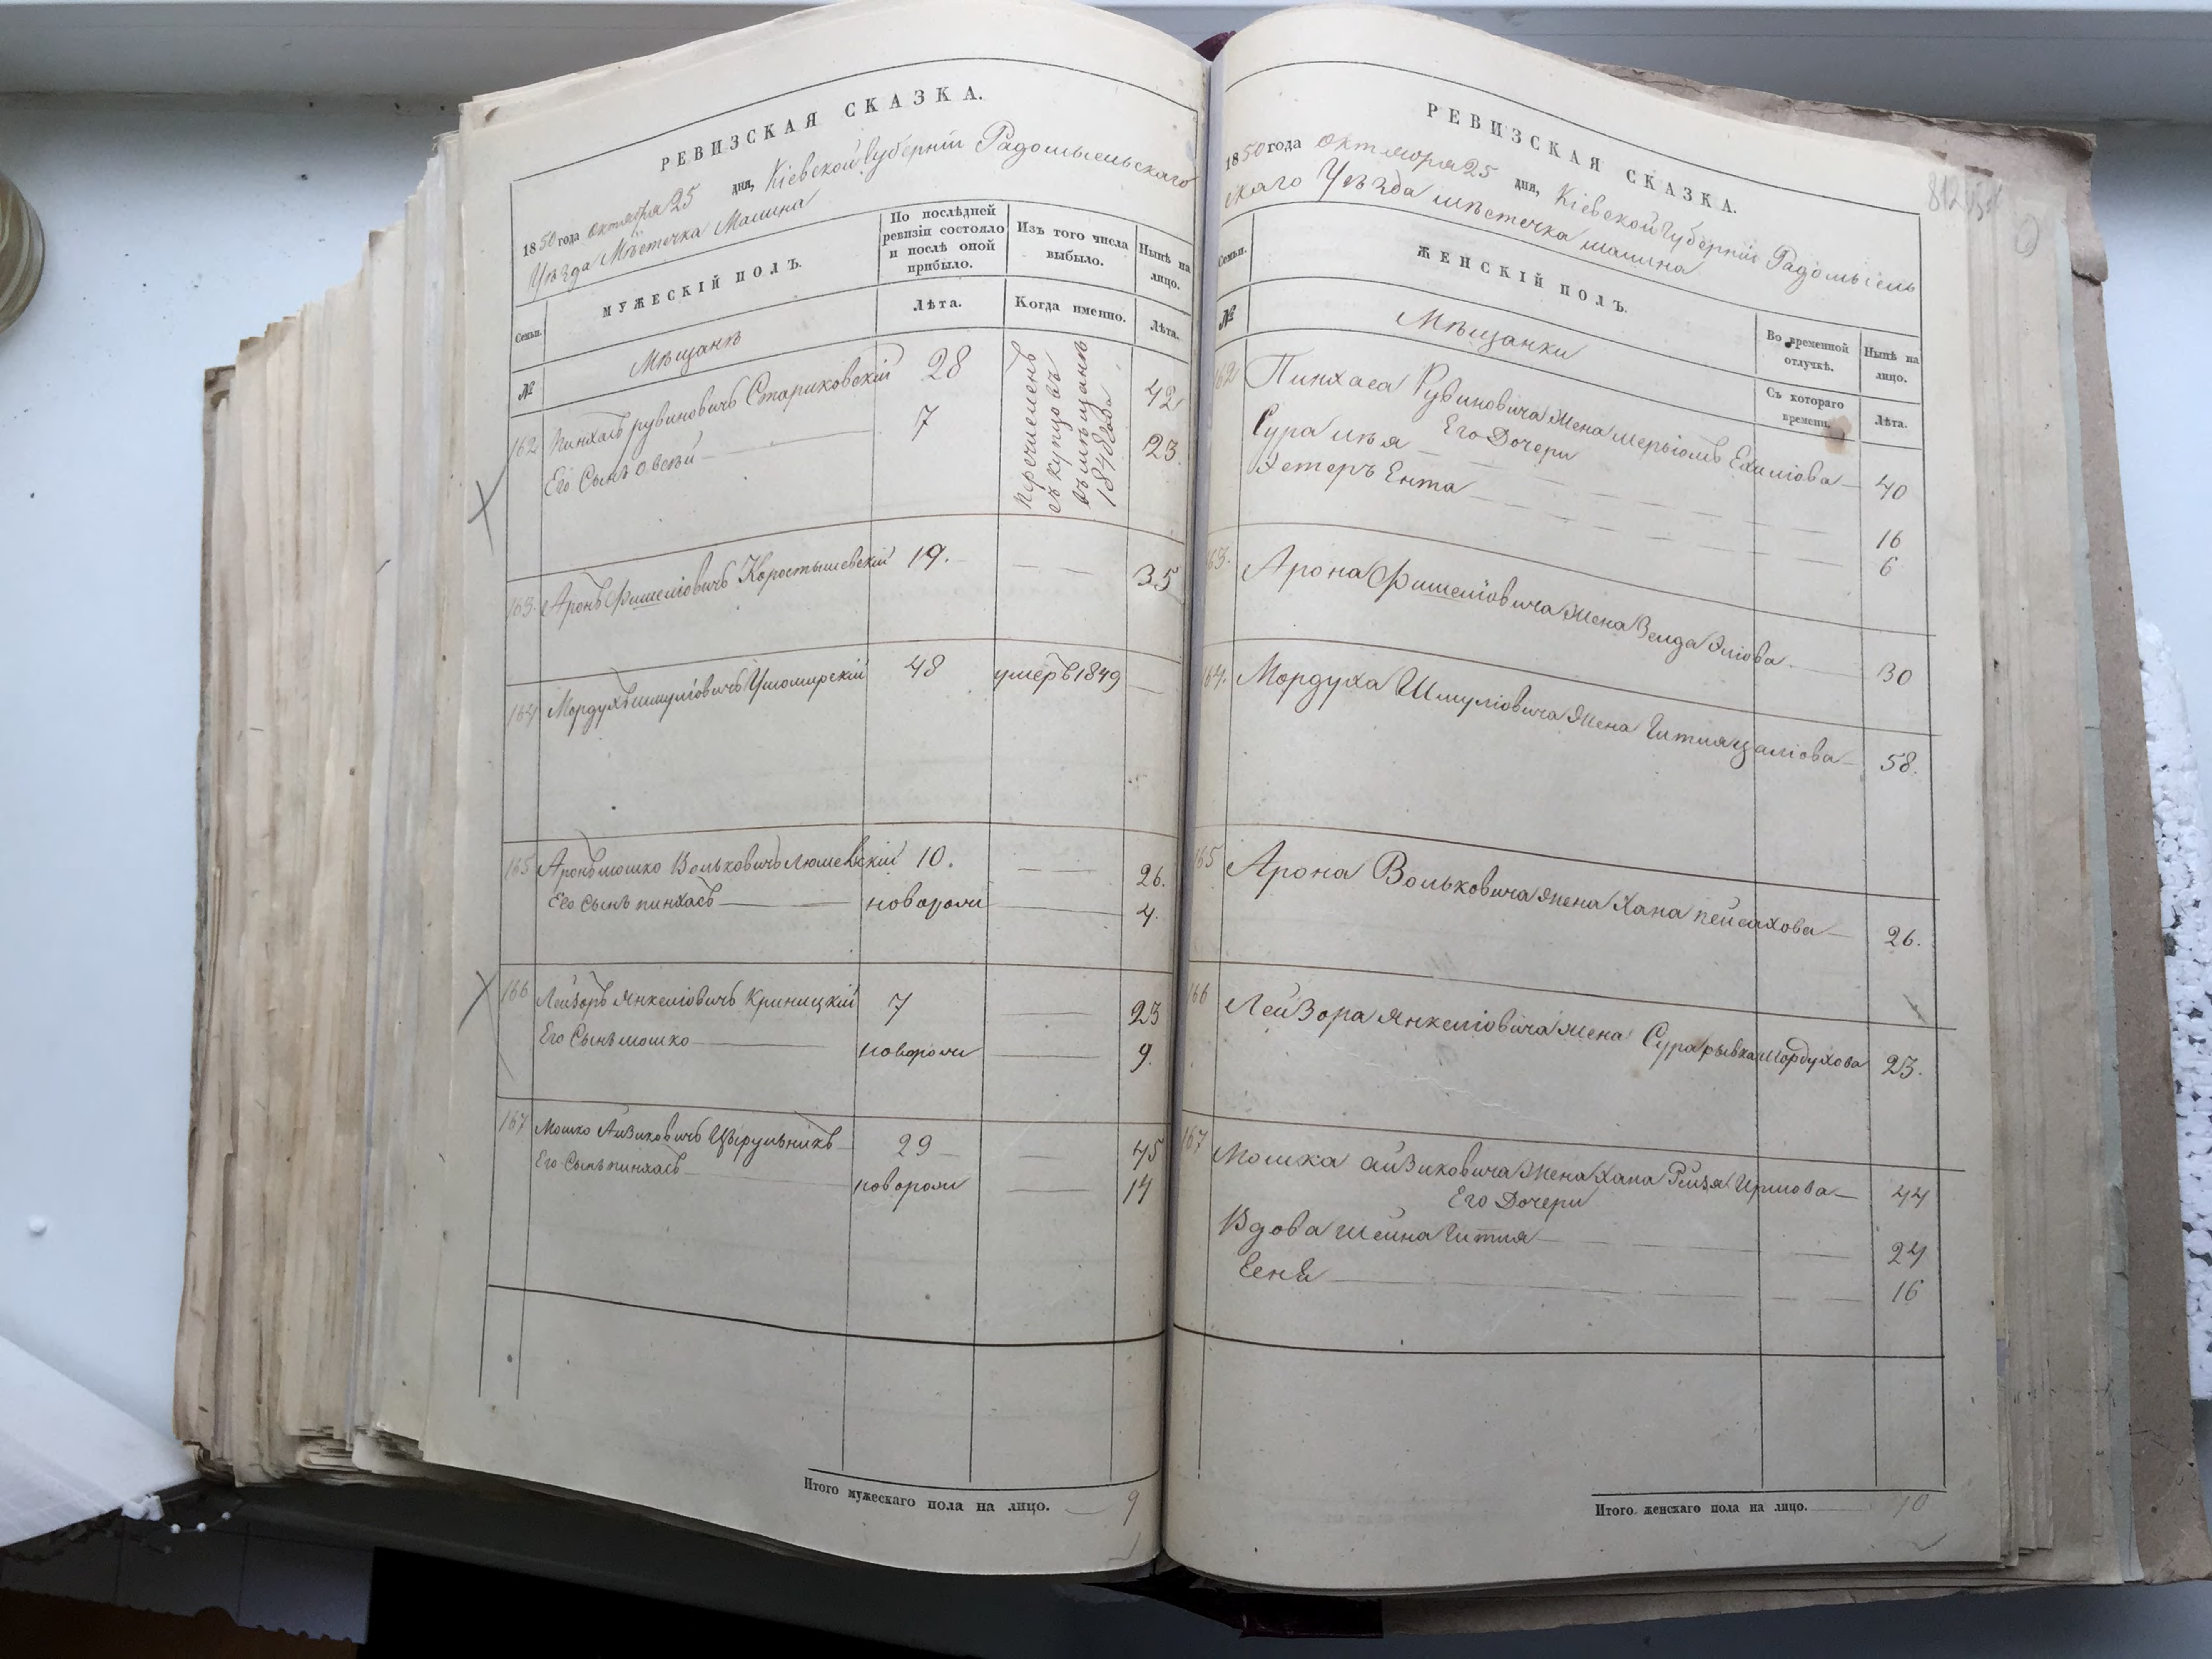 РЕВИЗСКАЯ СКАЗКА.
1850 года октября 25 дня, Кіевской Губерніи Радомысльскаго
Уѣзда Мѣстечка Малина
Семьи.
МУЖЕСКІЙ ПОЛЪ.
По послѣдней ревизіи состояло и послѣ оной прибыло.
Изъ того числа выбыло.
Нынѣ на лицо.
№
Мѣщанѣ
Лѣта.
Когда именно.
Лѣта.
162 Пинхасъ рувиновичъ Стариковскій 28 42
Его Сынъ Овсѣй 7 23.
перечисленъ
съ купцовъ
въ мѣщанѣ
1848 года
163. Аронъ Фишеліовичъ Коростышевскій 19. 35
164 Мордухъ шмуліовичъ Ушомирскій 48 умеръ 1849
165 Аронъ мошко Вольковичъ 10. 26.
Его Сынъ пинхасъ новорожи 4.
166 Лейзоръ Янкеліовичъ Криницкій 7 23
Его Сынъ мошко новорожи 9.
167 Мошко Айзиковичъ Цырульникъ 29 45
Его Сынъ пинхасъ новорожи 14
Итого мужескаго пола на лицо. 9
РЕВИЗСКАЯ СКАЗКА.
1850 года октября 25 дня, Кіевской Губерніи Радомысль
скаго Уѣзда мѣстечка малина
812
Семьи.
ЖЕНСКІЙ ПОЛЪ.
Во временной отлучкѣ.
Нынѣ на лицо.
№
Мѣщанки
Съ котораго времени.
Лѣта.
162 Пинхаса Рувиновича Жена мерьіомъ Ехиліова 40
Его Дочери
Сура лѣя 16
Эстеръ Ента 6
163. Арона Фишеліовича Жена Зелда Эліова 30
164. Мордуха Шмуліовича Жена Гитля цаліова 58.
165 Арона Вольковича Жена Хана пейсахова 26.
166 Лейзора Янкеліовича Жена Сура рывка Мордухова 23.
167 Мошка айзиковича Жена Хана Рейзя Ицкова 44
Его Дочери
Вдова шейна Гитля 24
16
Итого женскаго пола на лицо. 10